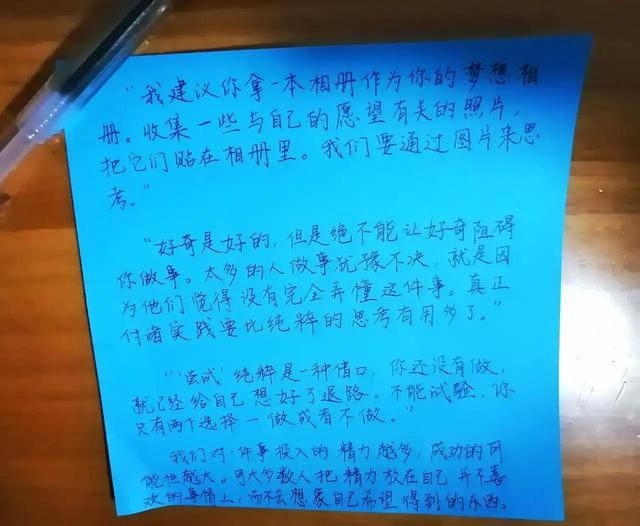 “我建议你拿一本相册作为你的梦想相
册。收集一些与自己的愿望有关的照片，
把它们贴在相册里。我们要通过图片来思
考。”
“好奇是好的，但是绝不能让好奇阻碍
你做事。太多的人做事犹豫不决，就是因
为他们觉得没有完全弄懂这件事。真正
付诸实践要比纯粹的思考有用多了。”
“‘尝试’纯粹是一种借口，你还没有做，
就已经给自己想好了退路。不能试验，你
只有两个选择－做或者不做。”
我们对一件事投入的精力越多，成功的可
能性越大。可大多数人把精力放在自己并不喜
欢的事情上，而不去想象自己希望得到的东西。